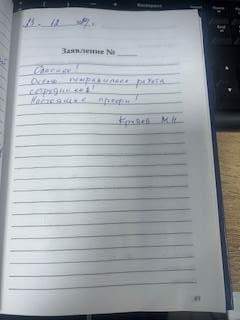 13. 12
Заявление № ____
Спасибо!
Очень понравилась работа
сотрудников!
Настоящие профи!
М.Н.